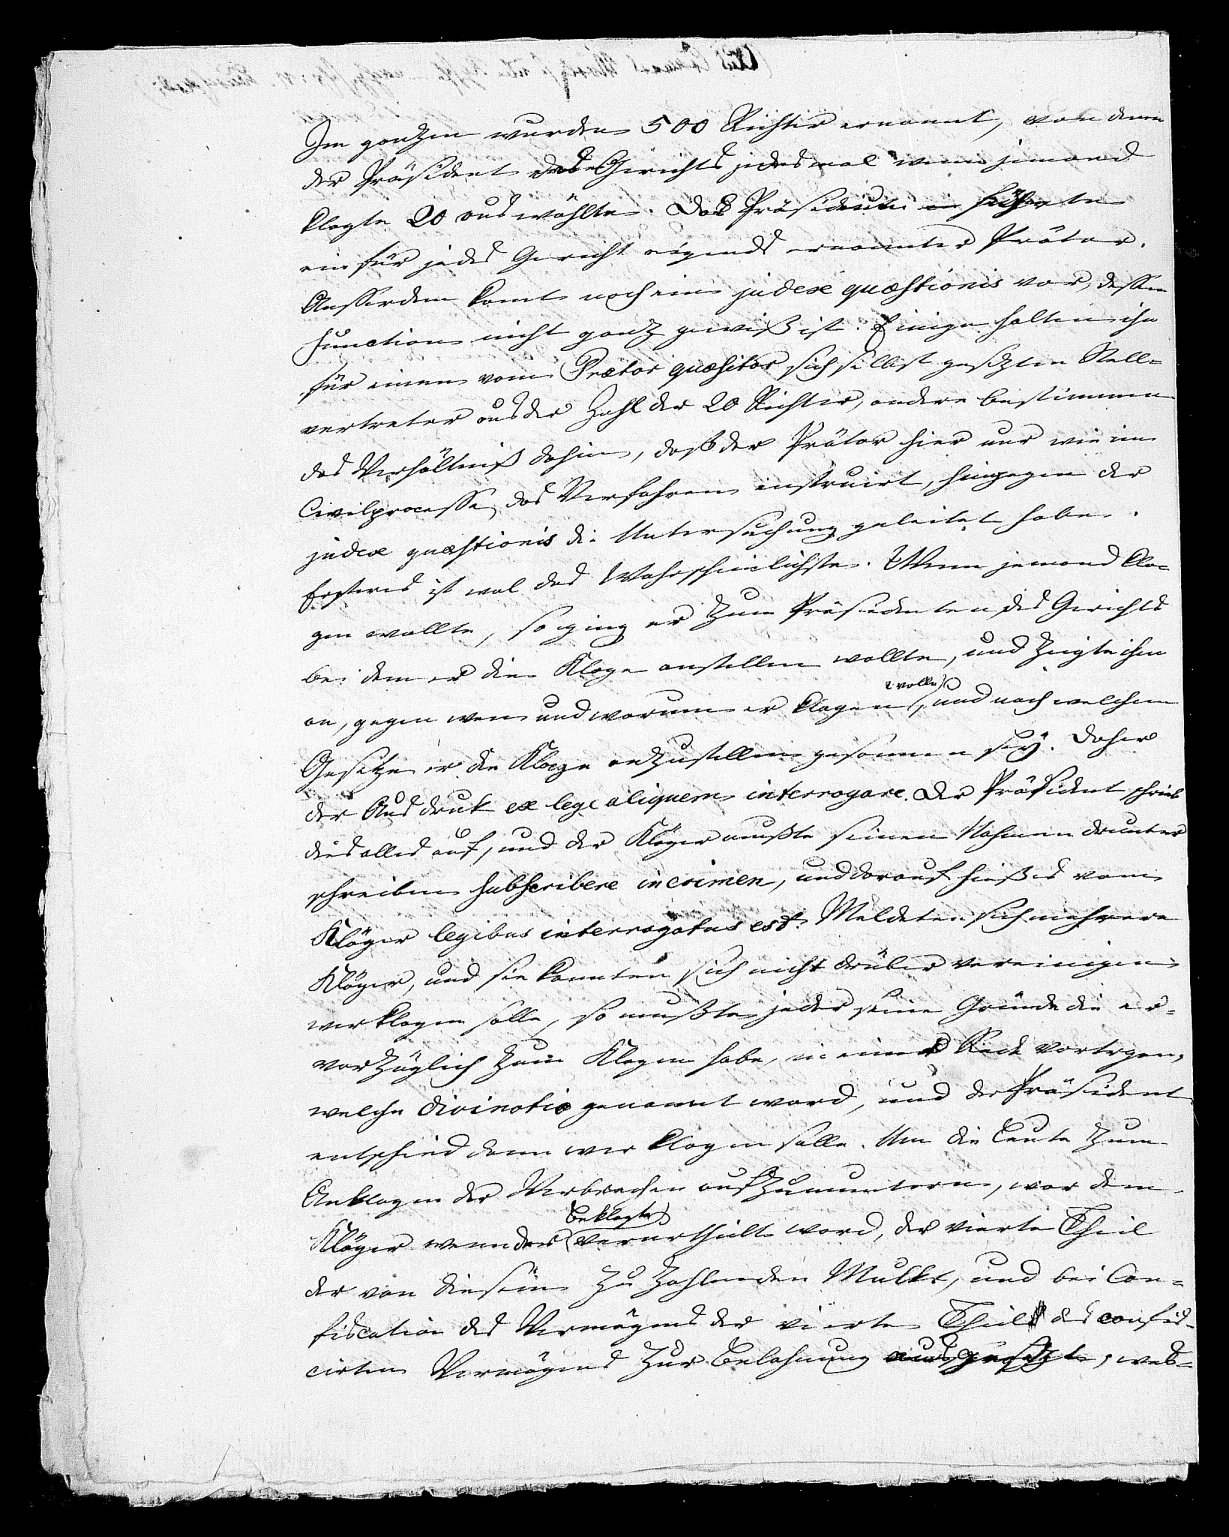 Im ganzen wurden 500 Richter ernannt, von denen
der Präsident des Gerichts jedesmal wenn jemand
klagte 20 auswählte. Das Präsidium führte
ein für jedes Gericht eigends ernannter Prätor.
Ausserdem komt noch ein judex quæstionis vor, dessen
Function nicht ganz gewiß ist. Einige halten ihn
für einen vom Prætor quæsitor sich selbst gesezten Stell-
vertreter aus der Zahl der 20 Richter, andere bestimmen
das Verhältniß dahin, daß der Prätor hier nur wie im
Civilprocesse das Verfahren instruirt, hingegen der
judex quæstionis die Untersuchung geleitet habe.
Ersteres ist wol das Wahrscheinlichste. Wenn jemand kla-
gen wollte, so ging er zum Präsidenten des Gerichts
bei dem er die Klage anstellen wollte, und zeigte ihm
an, gegen wen und warum er klagen wolle, und nach welchem
Gesetze er die Klage anzustellen gesonnen sey. Daher
der Ausdruk ex lege aliquem interrogare. Der Präsident schrieb
dies alles auf, und der Kläger mußte seinen Nahmen drunter
schreiben subscribere in crimen, und darauf hieß es vom
Kläger legibus interrogatus est. Meldeten sich mehrere
Kläger, und sie konnten sich nicht drüber vereinigen
wer klagen solle, so mußte jeder seine Gründe die er
vorzüglich zum Klagen habe, in einer Rede vortragen,
welche divinatio genannt ward, und der Präsident
entschied dann wer klagen solle. Um die Leute zum
Anklagen der Verbrechen aufzumuntern, war dem
Kläger wenn der Beklagte verurtheilt ward, der vierte Theil
der von diesem zu zahlenden Mulkt, und bei Con-
fiscation des Vermögens der vierte Theil des confis-
cirten Vermögens zur Belohnung ausgesezt, wes-